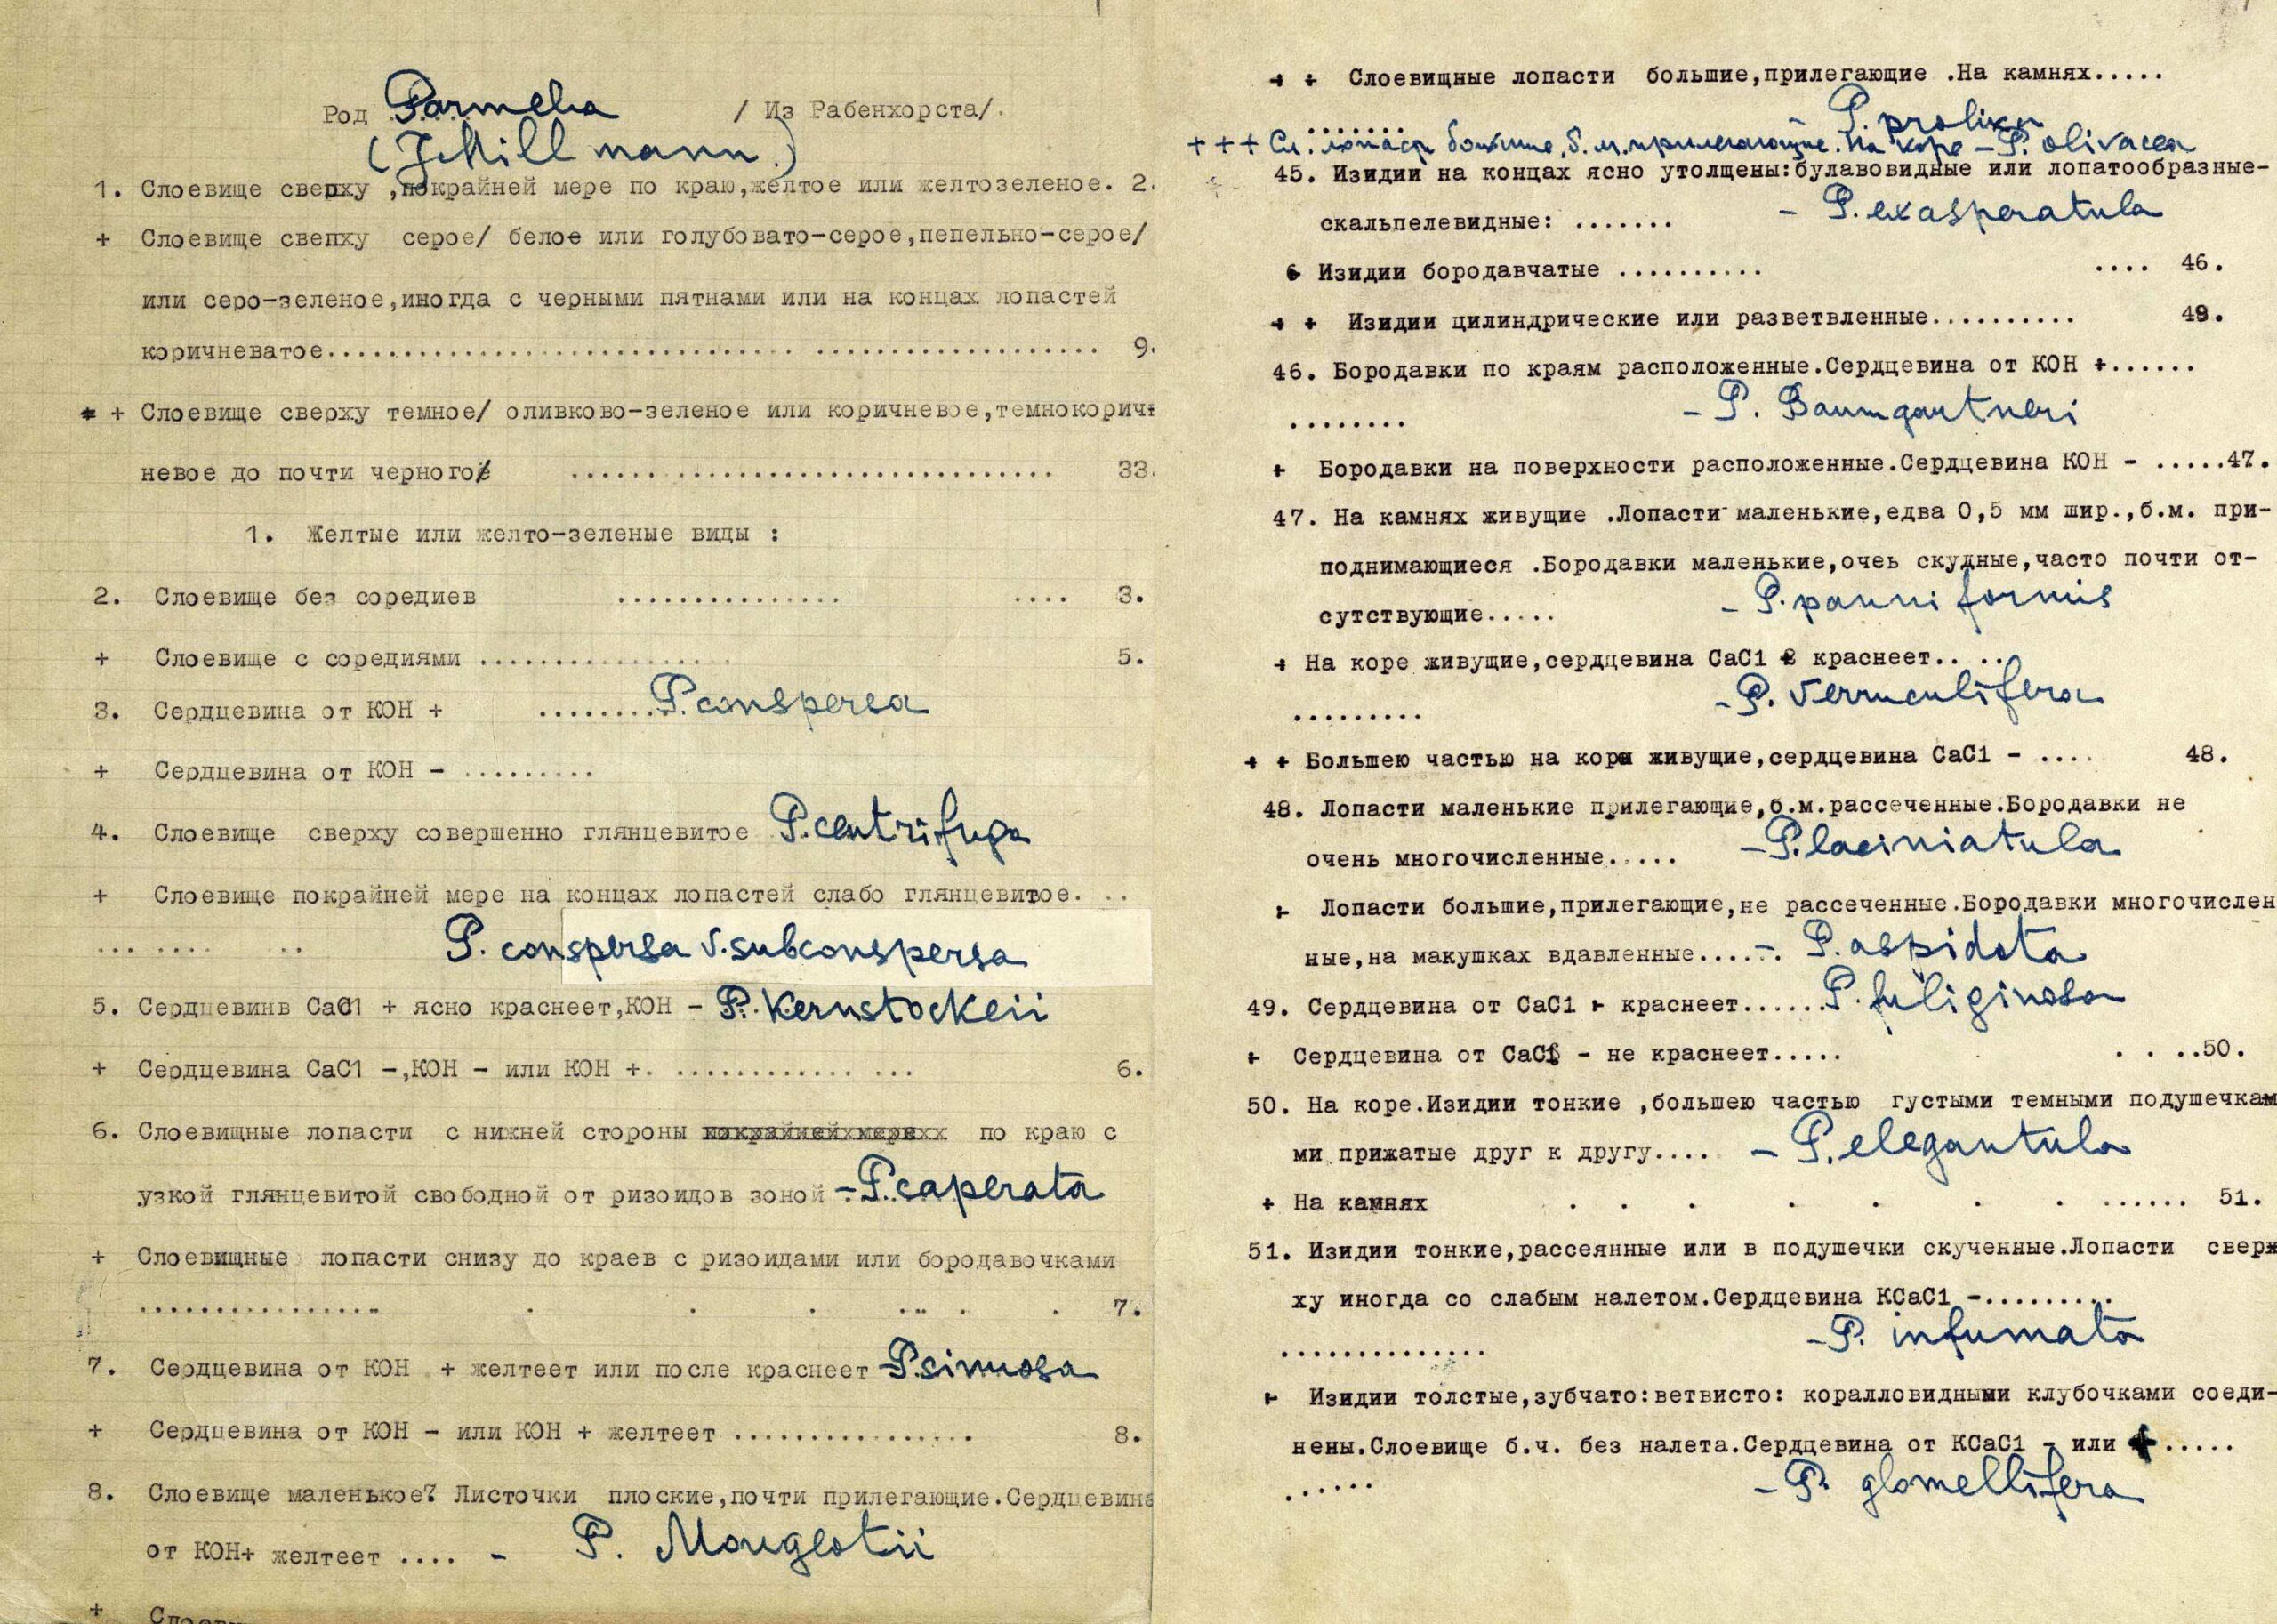 Род Parmelia / Из Рабенхорста/.
mann.)
1. Слоевище сверху ,покрайней мере по краю,желтое или желтозеленое. 2.
+ Слоевище свепху серое/ белое или голубовато-серое,пепельно-серое/
или серо-зеленое,иногда с черными пятнами или на концах лопастей
коричневатое.......................................................... 9.
+ + Слоевище сверху темное/ оливково-зеленое или коричневое,темнокорич
невое до почти черного/ .................................. 33.
1. Желтые или желто-зеленые виды :
2. Слоевище без соредиев ............... .... 3.
+ Слоевище с соредиями .................. 5.
3. Сердцевина от КОН + .........P. conspersa
+ Сердцевина от КОН - .........
4. Слоевище сверху совершенно глянцевитое P. centrifuga
+ Слоевище покрайней мере на концах лопастей слабо глянцевитое. ..
... .... .. P. conspersa v. subconspersa
5. Сердцевинв СаС1 + ясно краснеет,КОН - P. Kernstockeii
+ Сердцевина СаС1 -,КОН - или КОН +. ............ ... 6.
6. Слоевищные лопасти с нижней стороны по краю с
узкой глянцевитой свободной от ризоидов зоной - P. caperata
+ Слоевищные лопасти снизу до краев с ризоидами или бородавочками
................. . . . ... . . 7.
7. Сердцевина от КОН + желтеет или после краснеет - P. sinuosa
+ Сердцевина от КОН - или КОН + желтеет ................ 8.
8. Слоевище маленькое? Листочки плоские,почти прилегающие.Сердцевина
от КОН+ желтеет .... - P. Mougeotii
+
+ + Слоевищные лопасти большие,прилегающие .На камнях.....
....... - P. prolixa
+++ Сл. лопасти большие, б. м. прилегающие. На коре - P. olivacea
45. Изидии на концах ясно утолщены:булавовидные или лопатообразные-
скальпелевидные: ....... - P. exasperatula
+ Изидии бородавчатые .......... .... 46.
+ + Изидии цилиндрические или разветвленные.......... 49.
46. Бородавки по краям расположенные.Сердцевина от КОН +......
........ - P. Baumgartneri
+ Бородавки на поверхности расположенные.Сердцевина КОН - .....47.
47. На камнях живущие .Лопасти маленькие,едва 0,5 мм шир.,б.м. при-
поднимающиеся .Бородавки маленькие,очеь скудные,часто почти от-
сутствующие..... - P. panniformis
+ На коре живущие,сердцевина СаС1 + краснеет.. ..
......... - P. verruculifera
+ + Большею частью на коре живущие,сердцевина СаС1 - .... 48.
48. Лопасти маленькие прилегающие,б.м.рассеченные.Бородавки не
очень многочисленные..... - P. laciniatula
+ Лопасти большие,прилегающие,не рассеченные.Бородавки многочислен
ные,на макушках вдавленные....-. P. aspidota
49. Сердцевина от СаС1 + краснеет...... P. fuliginosa
+ Сердцевина от СаС1 - не краснеет..... . . ..50.
50. На коре.Изидии тонкие ,большею частью густыми темными подушечкам
ми прижатые друг к другу.... - P. elegantula
+ На камнях . . . . . . . ...... 51.
51. Изидии тонкие,рассеянные или в подушечки скученные.Лопасти сверх
ху иногда со слабым налетом.Сердцевина КСаС1 -.........
.............. - P. infumata
+ Изидии толстые,зубчато:ветвисто: коралловидными клубочками соеди-
нены.Слоевище б.ч. без налета.Сердцевина от КСаС1 - или +.....
...... - P. glomellifera